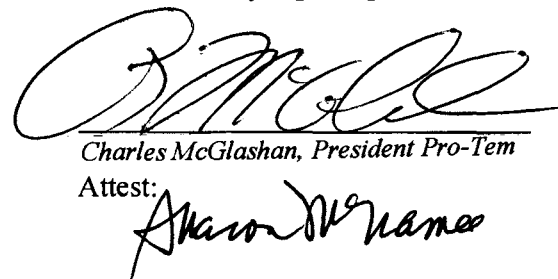 Charles McGlashan, President Pro-Tem
Attest:
Sharon McNamee